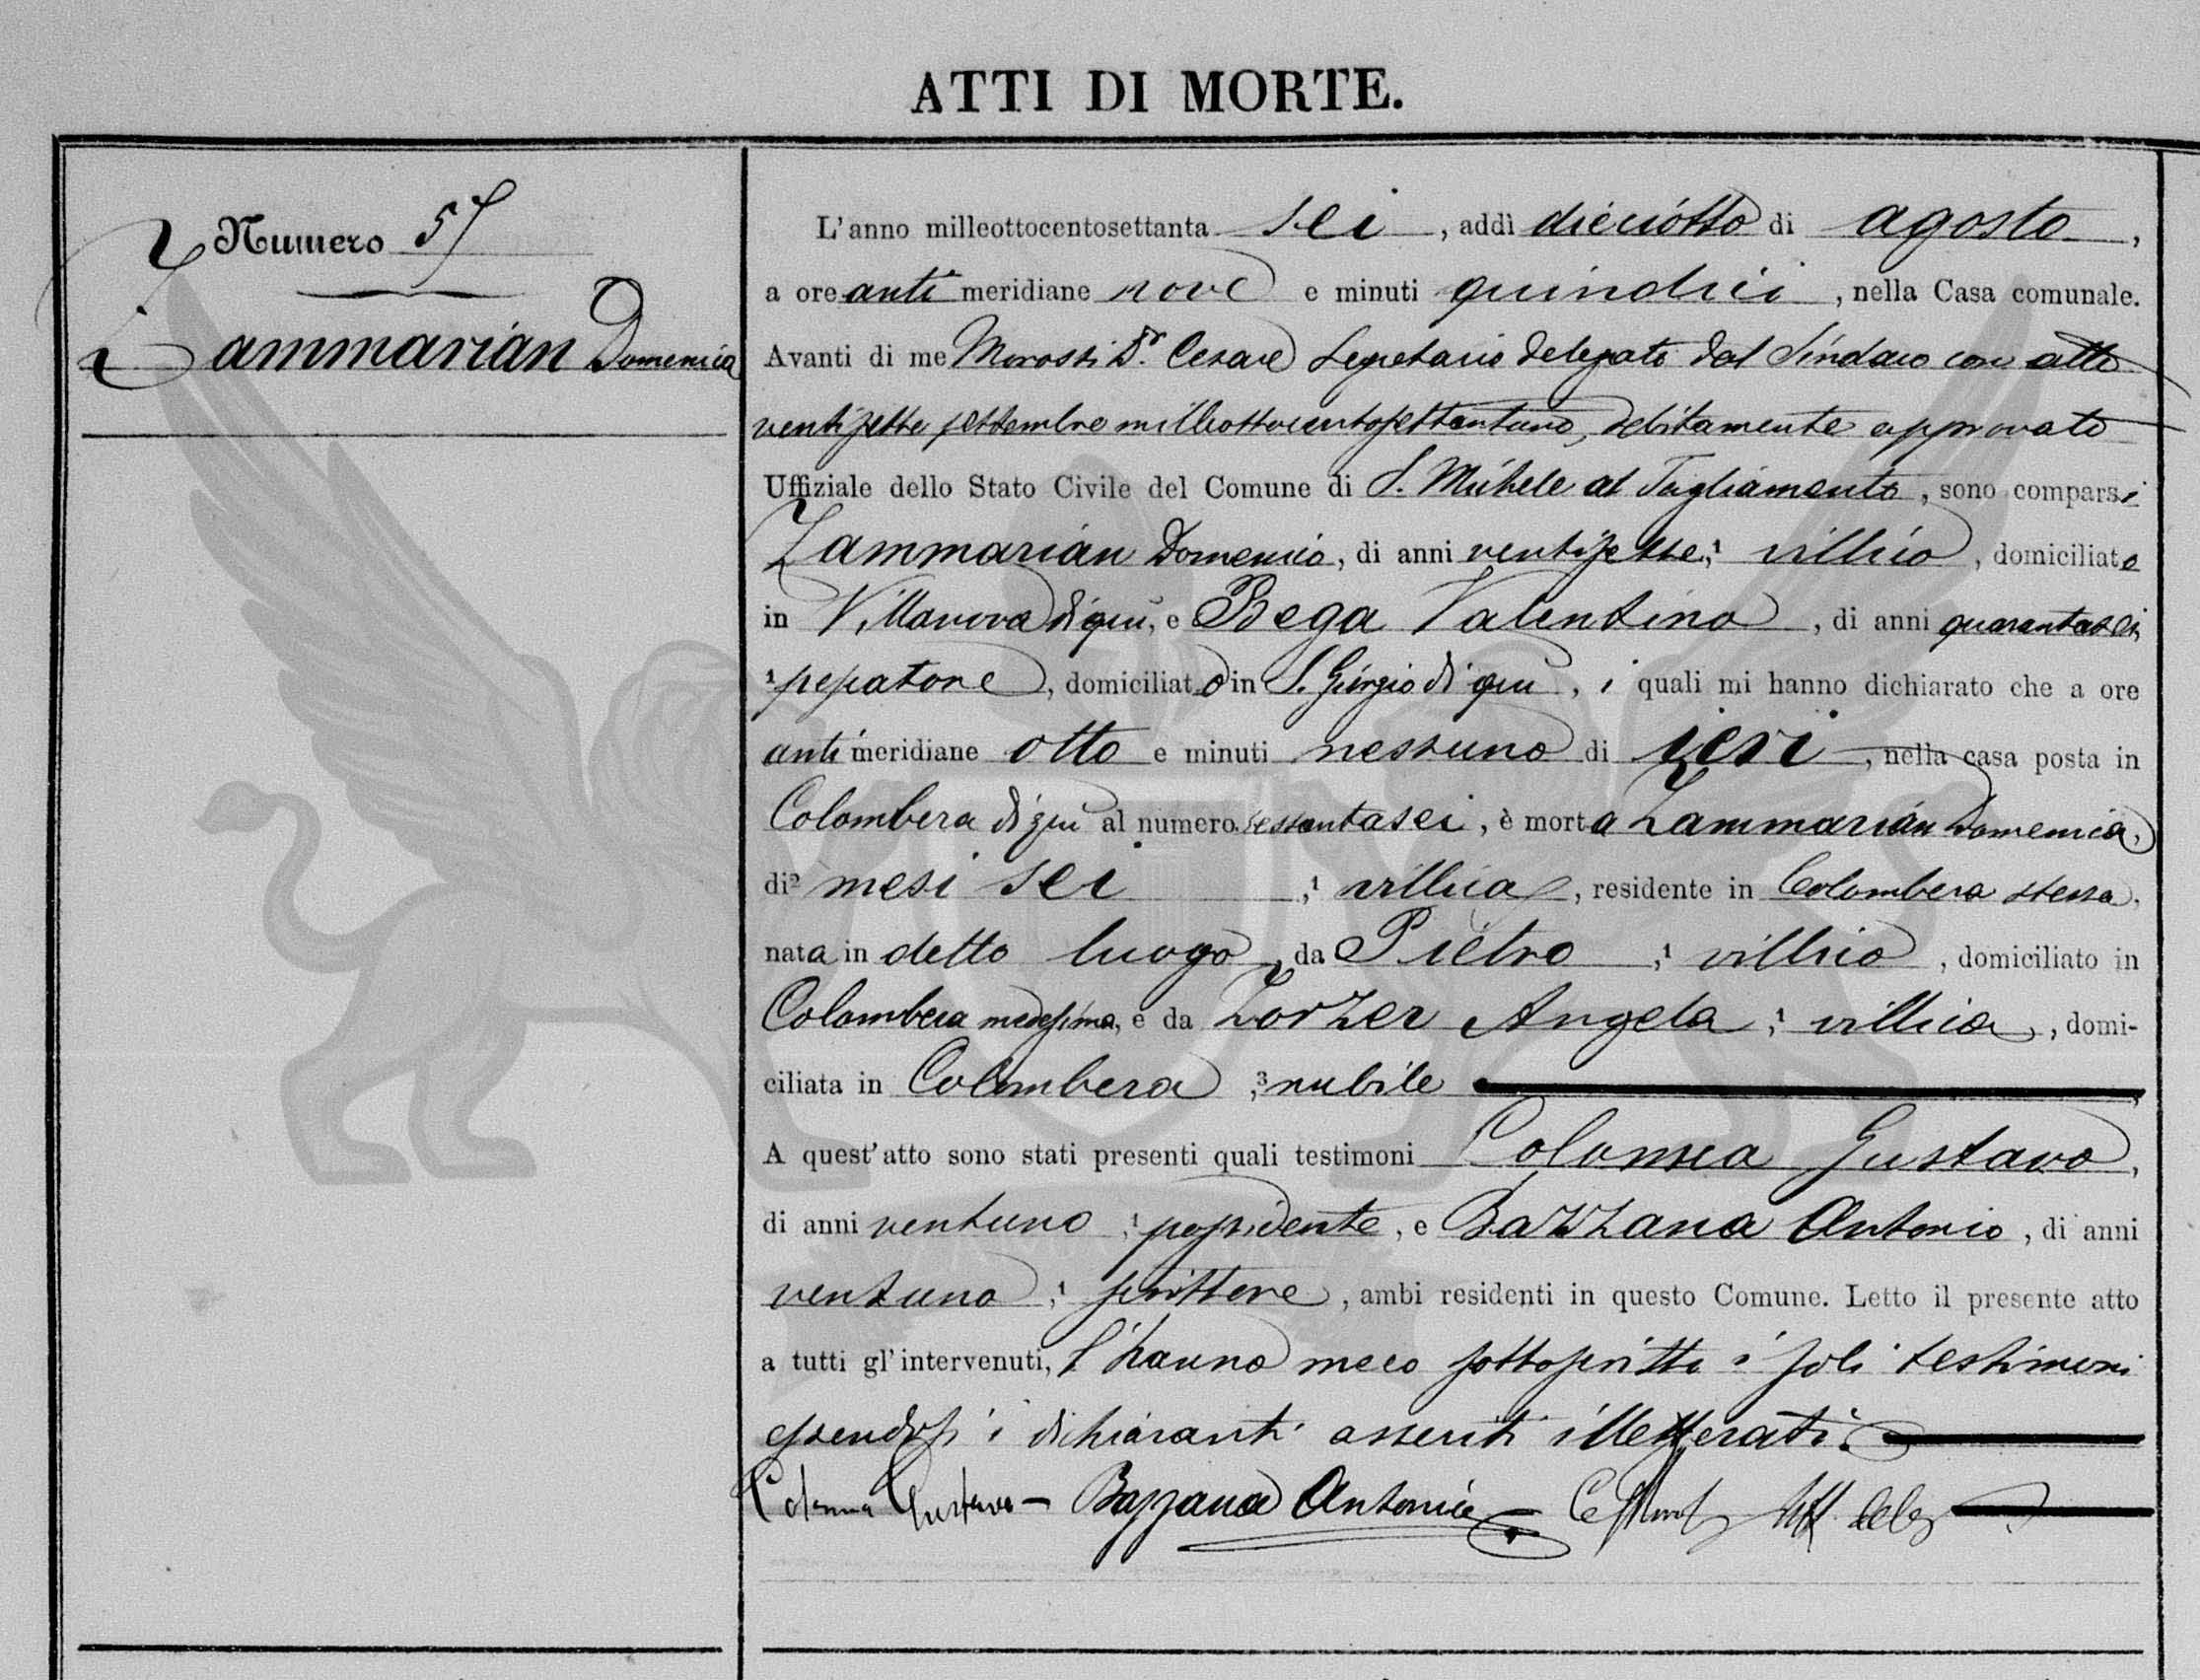 ATTI DI MORTE.
Numero 57
Zammarian Domenica
L'anno milleottocentosettanta sei, addì dieciotto di agosto,
a ore anti meridiane nove e minuti quindici, nella Casa comunale.
Avanti di me Morossi Dr. Cesare Segretario delegato dal Sindaco con atto
ventisette settembre milleottocentosettantuno, debitamente approvato
Uffiziale dello Stato Civile del Comune di S. Michele al Tagliamento, sono comparsi
Zammarian Domenico, di anni ventisette,¹ villico, domiciliato
in Villanova di qui, e Bega Valentino, di anni quarantasei,
¹ pescatore, domiciliato in S. Giorgio di qui, i quali mi hanno dichiarato che a ore
anti meridiane otto e minuti nessuno di ieri, nella casa posta in
Colombera di qui al numero sessantasei, è morta Zammarian Domenica,
di² mesi sei,¹ villica, residente in Colombera stessa,
nata in detto luogo, da Pietro,¹ villico, domiciliato in
Colombera medesima, e da Zorzer Angela,¹ villica, domi-
ciliata in Colombera,³ nubile
A quest'atto sono stati presenti quali testimoni Gustavo,
di anni ventuno,¹ possidente, e Bazzana Antonio, di anni
ventuno,¹ scrittore, ambi residenti in questo Comune. Letto il presente atto
a tutti gl'intervenuti, l'hanno meco sottoscritto i soli testimoni
essendosi i dichiaranti asseriti illetterati.
Gustavo - Bazzana Antonio - Uff. deleg